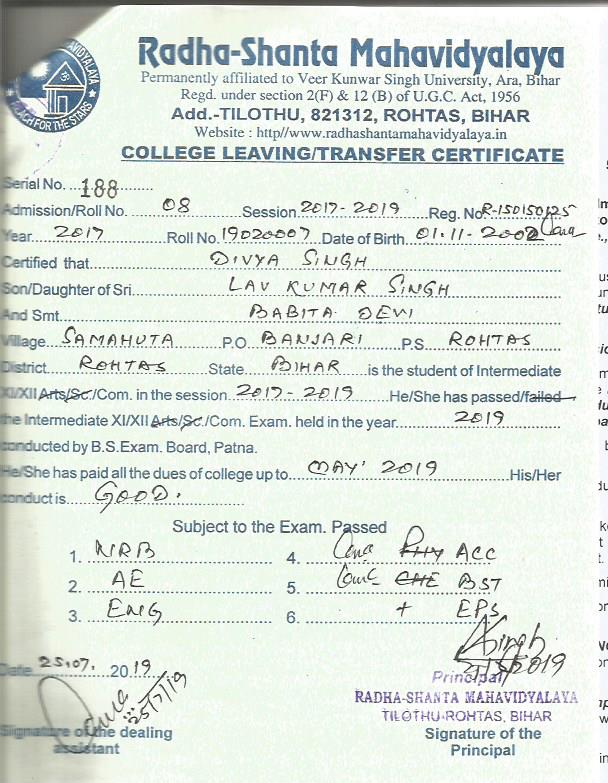 MAHAVIDYALAYA
REACH FOR THE STARS
Radha-Shanta Mahavidyalaya
Permanently affiliated to Veer Kunwar Singh University, Ara, Bihar
Regd. under section 2(F) & 12 (B) of U.G.C. Act, 1956
Add.-TILOTHU, 821312, ROHTAS, BIHAR
Website : http//www.radhashantamahavidyalaya.in
COLLEGE LEAVING/TRANSFER CERTIFICATE
Serial No. 188
Admission/Roll No. 08 Session 2017-2019 Reg. No R-150150125
Year 2017 Roll No. 19020007 Date of Birth 01.11-2002
Certified that DIVYA SINGH
Son/Daughter of Sri. LAV KUMAR SINGH
And Smt. BABITA DEVI
Village SAMAHUTA P.O. BANJARI P.S ROHTAS
District ROHTAS State BIHAR is the student of Intermediate
XI/XII Arts/Sc/Com. in the session 2017-2019 He/She has passed/failed
the Intermediate XI/XII Arts/Sc./Com. Exam. held in the year 2019
conducted by B.S.Exam. Board, Patna.
He/She has paid all the dues of college up to MAY' 2019 His/Her
conduct is GOOD.
Subject to the Exam. Passed
1. NRB 4. PHY ACC
2. AE 5. CHE BST
3. ENG 6. + EPS
Date 25.07. 2019
25/7/19
Singh
Principal
RADHA-SHANTA MAHAVIDYALAYA
TILOTHU-ROHTAS, BIHAR
Signature of the dealing assistant
Signature of the Principal